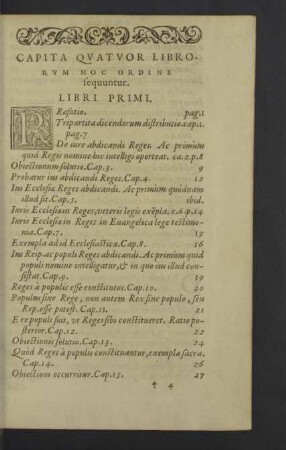 CAPITA QVATVOR LIBRO-
RVM HOC ORDINE
sequuntur.
LIBRI PRIMI.
PRæfatio. pag.1
Tripartita dicendorum distributio.cap.1.
pag.7
De iure abdicandi Reges. Ac primùm
quid Reges nomine hic intelligi oporteat. ca.2.p.8
Obiectionum solutio. Cap.3. 9
Probatur ius abdicandi Reges. Cap.4. 12
Ius Ecclesiæ Reges abdicandi. Ac primùm quodnam
illud sit. Cap.5. ibid.
Iuris Ecclesiæ in Reges, veteris legis exẽpla. c.6.p.14
Iuris Ecclesiæ in Reges in Euangelica lege testimo-
nia. Cap.7. 15
Exempla ad id Ecclesiastica. Cap.8. 16
Ius Reip. ac populi Reges abdicandi. Ac primùm quid
populi nomine intelligatur, & in quo ius illud con-
sistat. Cap.9. 19
Reges à populis esse constitutos. Cap.10. 20
Populus sine Rege, non autem Rex sine populo, seu
Rep. esse potest. Cap.11. 21
E re populi fuit, vt Reges sibi constitueret. Ratio po-
sterior. Cap.12. 22
Obiectionis solutio. Cap.13. 24
Quòd Reges à populis constituantur, exempla sacra.
Cap.14. 26
Obiectioni occurritur. Cap.15. 27
† 4